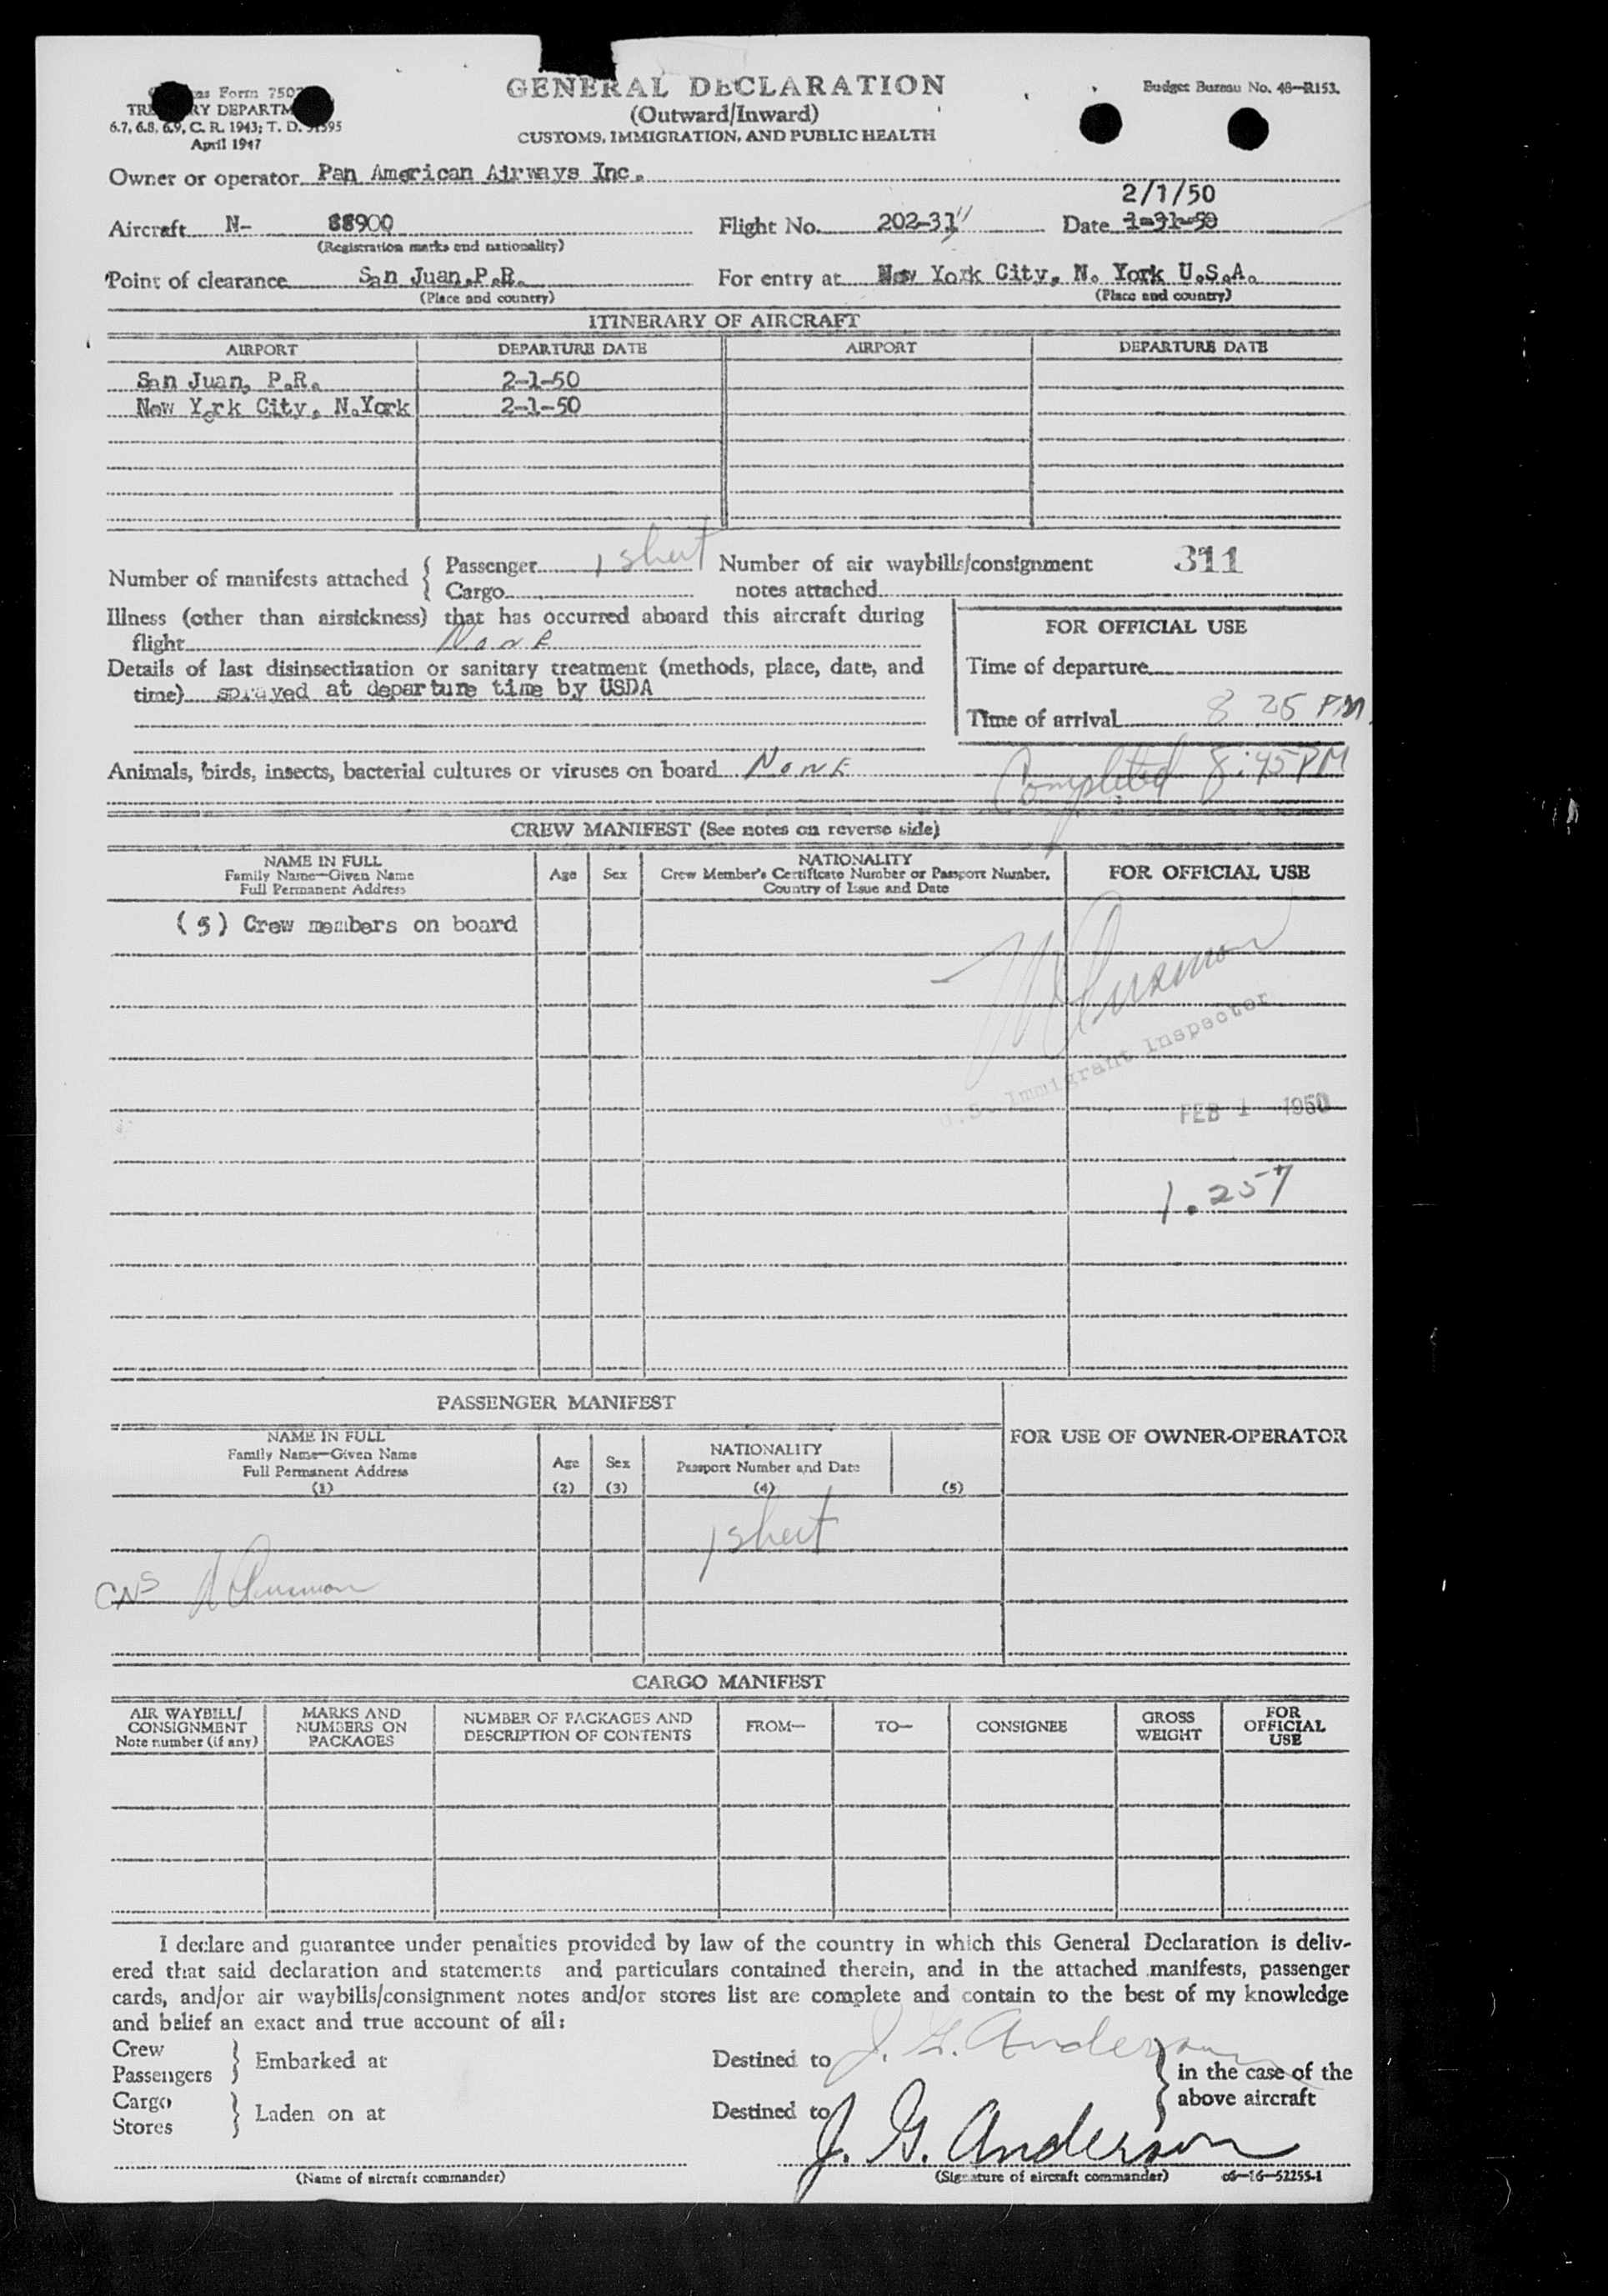 GENERAL DECLARATION
(Outward/Inward)
CUSTOMS, IMMIGRATION, AND PUBLIC HEALTH
Form 7507
6.7, 6.8, 6.9, C. R. 1943; T. D. 51595
April 1947
Budget Bureau No. 48—R153.
Owner or operator Pan American Airways Inc.
2/1/50
Aircraft N- 88900 Flight No. 202-31 Date 1-31-50
(Registration marks and nationality)
Point of clearance San Juan,P.R. For entry at New York City, N. York U.S.A.
(Place and country) (Place and country)
ITINERARY OF AIRCRAFT
AIRPORT DEPARTURE DATE AIRPORT DEPARTURE DATE
San Juan, P.R. 2-1-50
New York City, N.York 2-1-50
Number of manifests attached { Passenger 1 sheet Number of air waybills/consignment 311
Cargo notes attached
Illness (other than airsickness) that has occurred aboard this aircraft during
flight None
FOR OFFICIAL USE
Details of last disinsectization or sanitary treatment (methods, place, date, and
time) sprayed at departure time by USDA
Time of departure
Time of arrival 8 25 PM
Animals, birds, insects, bacterial cultures or viruses on board None Completed 8:45 PM
CREW MANIFEST (See notes on reverse side)
NAME IN FULL
Family Name—Given Name
Full Permanent Address
Age Sex
NATIONALITY
Crew Member's Certificate Number or Passport Number,
Country of Issue and Date
FOR OFFICIAL USE
(5) Crew members on board
U.S. Immigrant Inspector
FEB 1 1950
1.257
PASSENGER MANIFEST
NAME IN FULL
Family Name—Given Name
Full Permanent Address
(1)
Age
(2)
Sex
(3)
NATIONALITY
Passport Number and Date
(4)
(5)
FOR USE OF OWNER-OPERATOR
1 sheet
CNS
CARGO MANIFEST
AIR WAYBILL/
CONSIGNMENT
Note number (if any)
MARKS AND
NUMBERS ON
PACKAGES
NUMBER OF PACKAGES AND
DESCRIPTION OF CONTENTS
FROM—
TO—
CONSIGNEE
GROSS
WEIGHT
FOR
OFFICIAL
USE
I declare and guarantee under penalties provided by law of the country in which this General Declaration is deliv-
ered that said declaration and statements and particulars contained therein, and in the attached manifests, passenger
cards, and/or air waybills/consignment notes and/or stores list are complete and contain to the best of my knowledge
and belief an exact and true account of all:
Crew
Passengers } Embarked at Destined to J. G. Anderson } in the case of the
above aircraft
Cargo
Stores } Laden on at Destined to
J. G. Anderson
(Name of aircraft commander) (Signature of aircraft commander) 06—16—52255-1